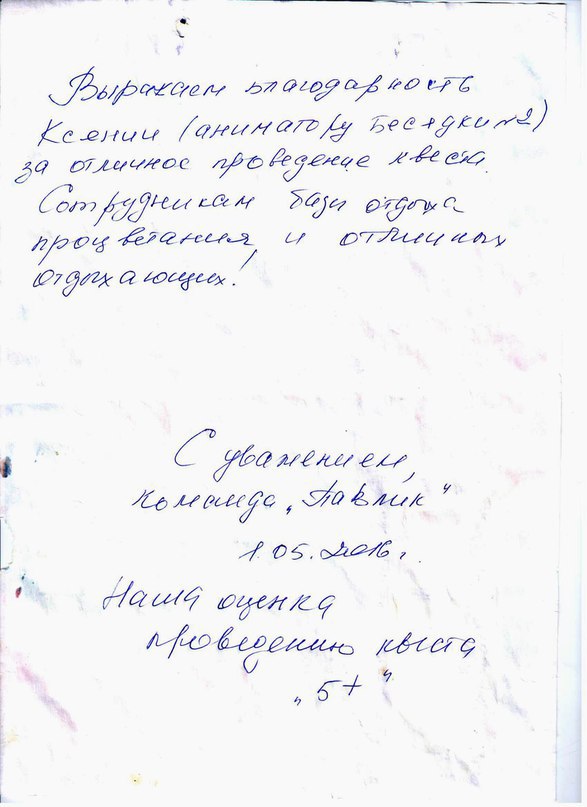 Выражаем благодарность
Ксении (аниматору Беседки №2)
за отличное проведение квеста.
Сотрудникам базы отдыха
процветания, и отличных
отдыхающих!
С уважением,
команда „Павлик“
1.05.2016г.
Наша оценка
проведению квеста
„5+“